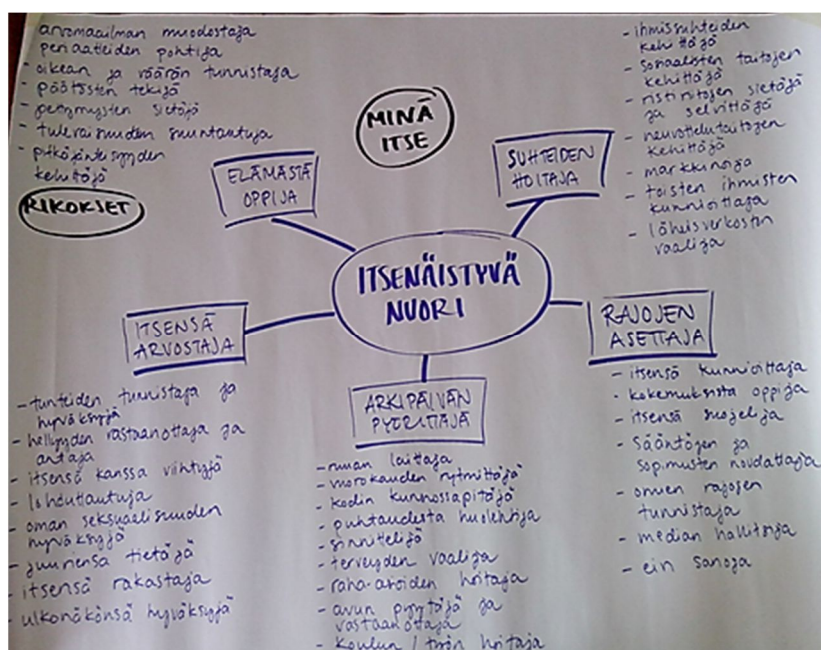 arvomaailman muodostaja
periaatteiden pohtija
- oikean ja väärän tunnistaja
- päätösten tekijä
- pettymysten sietäjä
- tulevaisuuden suuntautuja
- pitkäjänteisyyden
kehittäjä
RIKOKSET
MINÄ
ITSE
ELÄMÄSTÄ
OPPIJA
SUHTEIDEN
HOITAJA
- ihmissuhteiden
kehittäjä
- sosiaalisten taitojen
kehittäjä
- ristiriitojen sietäjä
ja selvittäjä
- neuvottelutaitojen
kehittäjä
- markkinoija
- toisten ihmisten
kunnioittaja
- läheisverkoston
vaalija
ITSENÄISTYVÄ
NUORI
ITSENSÄ
ARVOSTAJA
- tunteiden tunnistaja ja
hyväksyjä
- hellyyden vastaanottaja ja
antaja
- itsensä kanssa viihtyjä
- lohduttautuja
- oman seksuaalisuuden
hyväksyjä
- juuriensa tietäjä
- itsensä rakastaja
- ulkonäkönsä hyväksyjä
ARKIPÄIVÄN
PYÖRITTÄJÄ
- ruuan laittaja
- vuorokauden rytmittäjä
- kodin kunnossapitäjä
- puhtaudesta huolehtija
- sinnittelijä
- terveyden vaalija
- raha-asioiden hoitaja
- avun pyytäjä ja
vastaanottaja
- koulun / työn hoitaja
RAJOJEN
ASETTAJA
- itsensä kunnioittaja
- kokemuksista oppija
- itsensä suojelija
- sääntöjen ja
sopimusten noudattaja
- omien rajojen
tunnistaja
- median hallitsija
- ein sanoja